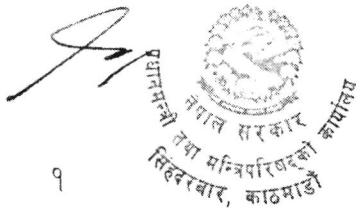 नेपाल सरकार
प्रधानमन्त्री तथा मन्त्रिपरिषद्को कार्यालय
सिंहदरबार, काठमाडौं
१